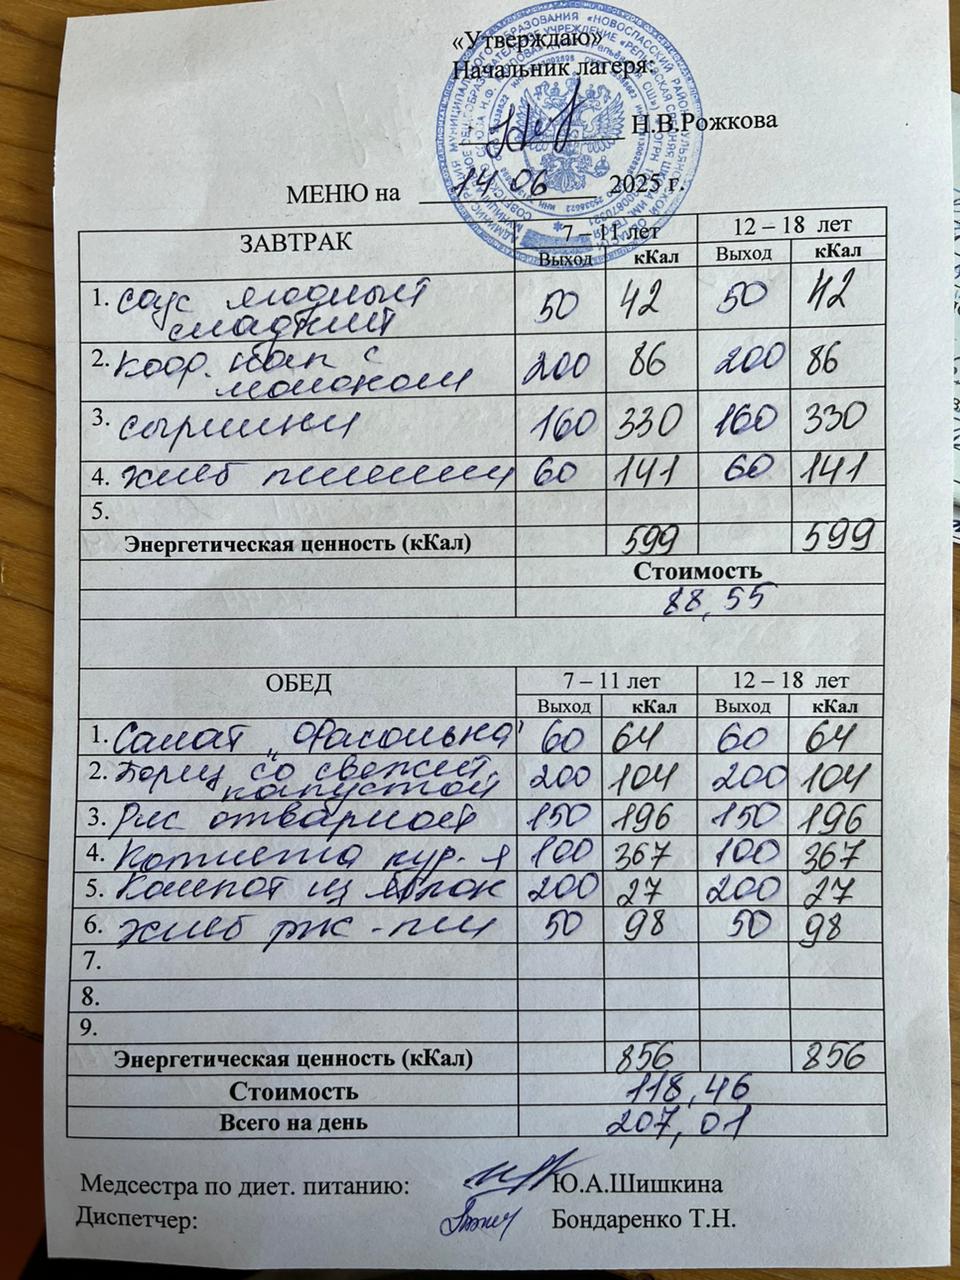 «Утверждаю»
Начальник лагеря:
Н.В.Рожкова
МЕНЮ на 14 06 2025 г.
ЗАВТРАК 7 – 11 лет 12 – 18 лет
Выход кКал Выход кКал
1. соус ягодный 50 42 50 42
сладкий
2. Кооф. нап с 200 86 200 86
молоком
3. сырники 160 330 160 330
4. хлеб пшенич 60 141 60 141
5.
Энергетическая ценность (кКал) 599 599
Стоимость
88,55
ОБЕД 7 – 11 лет 12 – 18 лет
Выход кКал Выход кКал
1. Салат „Фасолька" 60 64 60 64
2. Борщ со свежей 200 104 200 104
капустой
3. Рис отварной 150 196 150 196
4. Котлета кур-я 100 367 100 367
5. Компот из яблок 200 27 200 27
6. хлеб рж-пш 50 98 50 98
7.
8.
9.
Энергетическая ценность (кКал) 856 856
Стоимость 118,46
Всего на день 207,01
Медсестра по диет. питанию: Ю.А.Шишкина
Диспетчер: Бондаренко Т.Н.